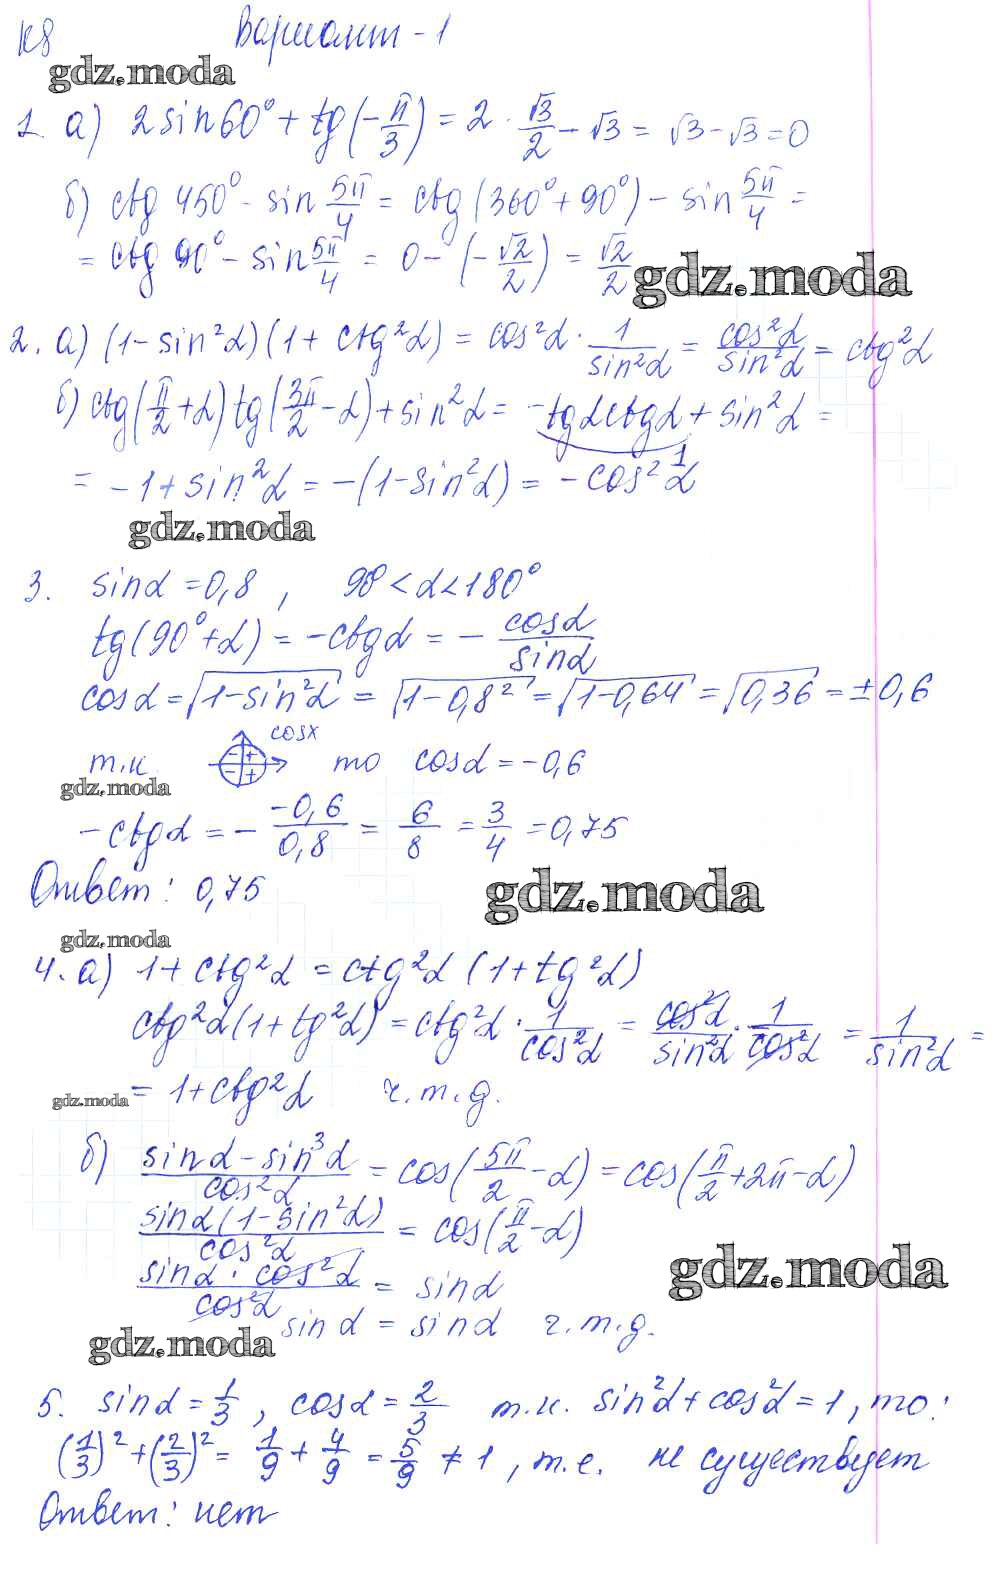 К8 Вариант - 1
gdz.moda
1. а) 2 sin 60° + tg(-π/3) = 2 · √3/2 - √3 = √3 - √3 = 0
б) ctg 450° - sin 5π/4 = ctg(360° + 90°) - sin 5π/4 =
= ctg 90° - sin 5π/4 = 0 - (-√2/2) = √2/2
gdz.moda
2. а) (1 - sin²α)(1 + ctg²α) = cos²α · 1/sin²α = cos²α/sin²α = ctg²α
б) ctg(π/2 + α) tg(3π/2 - α) + sin²α = -tgα ctgα + sin²α =
1
= -1 + sin²α = -(1 - sin²α) = -cos²α
gdz.moda
3. sinα = 0,8 , 90° < α < 180°
tg(90° + α) = -ctgα = - cosα/sinα
cosα = √(1 - sin²α) = √(1 - 0,8²) = √(1 - 0,64) = √0,36 = ±0,6
cosx
т.к. - + - + то cosα = -0,6
gdz.moda
-ctgα = - -0,6/0,8 = 6/8 = 3/4 = 0,75
Ответ: 0,75
gdz.moda
gdz.moda
4. а) 1 + ctg²α = ctg²α (1 + tg²α)
ctg²α(1 + tg²α) = ctg²α · 1/cos²α = cos²α/sin²α · 1/cos²α = 1/sin²α =
= 1 + ctg²α ч.т.д.
gdz.moda
б) (sinα - sin³α)/cos²α = cos(5π/2 - α) = cos(π/2 + 2π - α)
sinα(1 - sin²α)/cos²α = cos(π/2 - α)
sinα · cos²α/cos²α = sinα
gdz.moda
sinα = sinα ч.т.д.
gdz.moda
5. sinα = 1/3 , cosα = 2/3 т.к. sin²α + cos²α = 1, то:
(1/3)² + (2/3)² = 1/9 + 4/9 = 5/9 ≠ 1, т.е. не существует
Ответ: нет